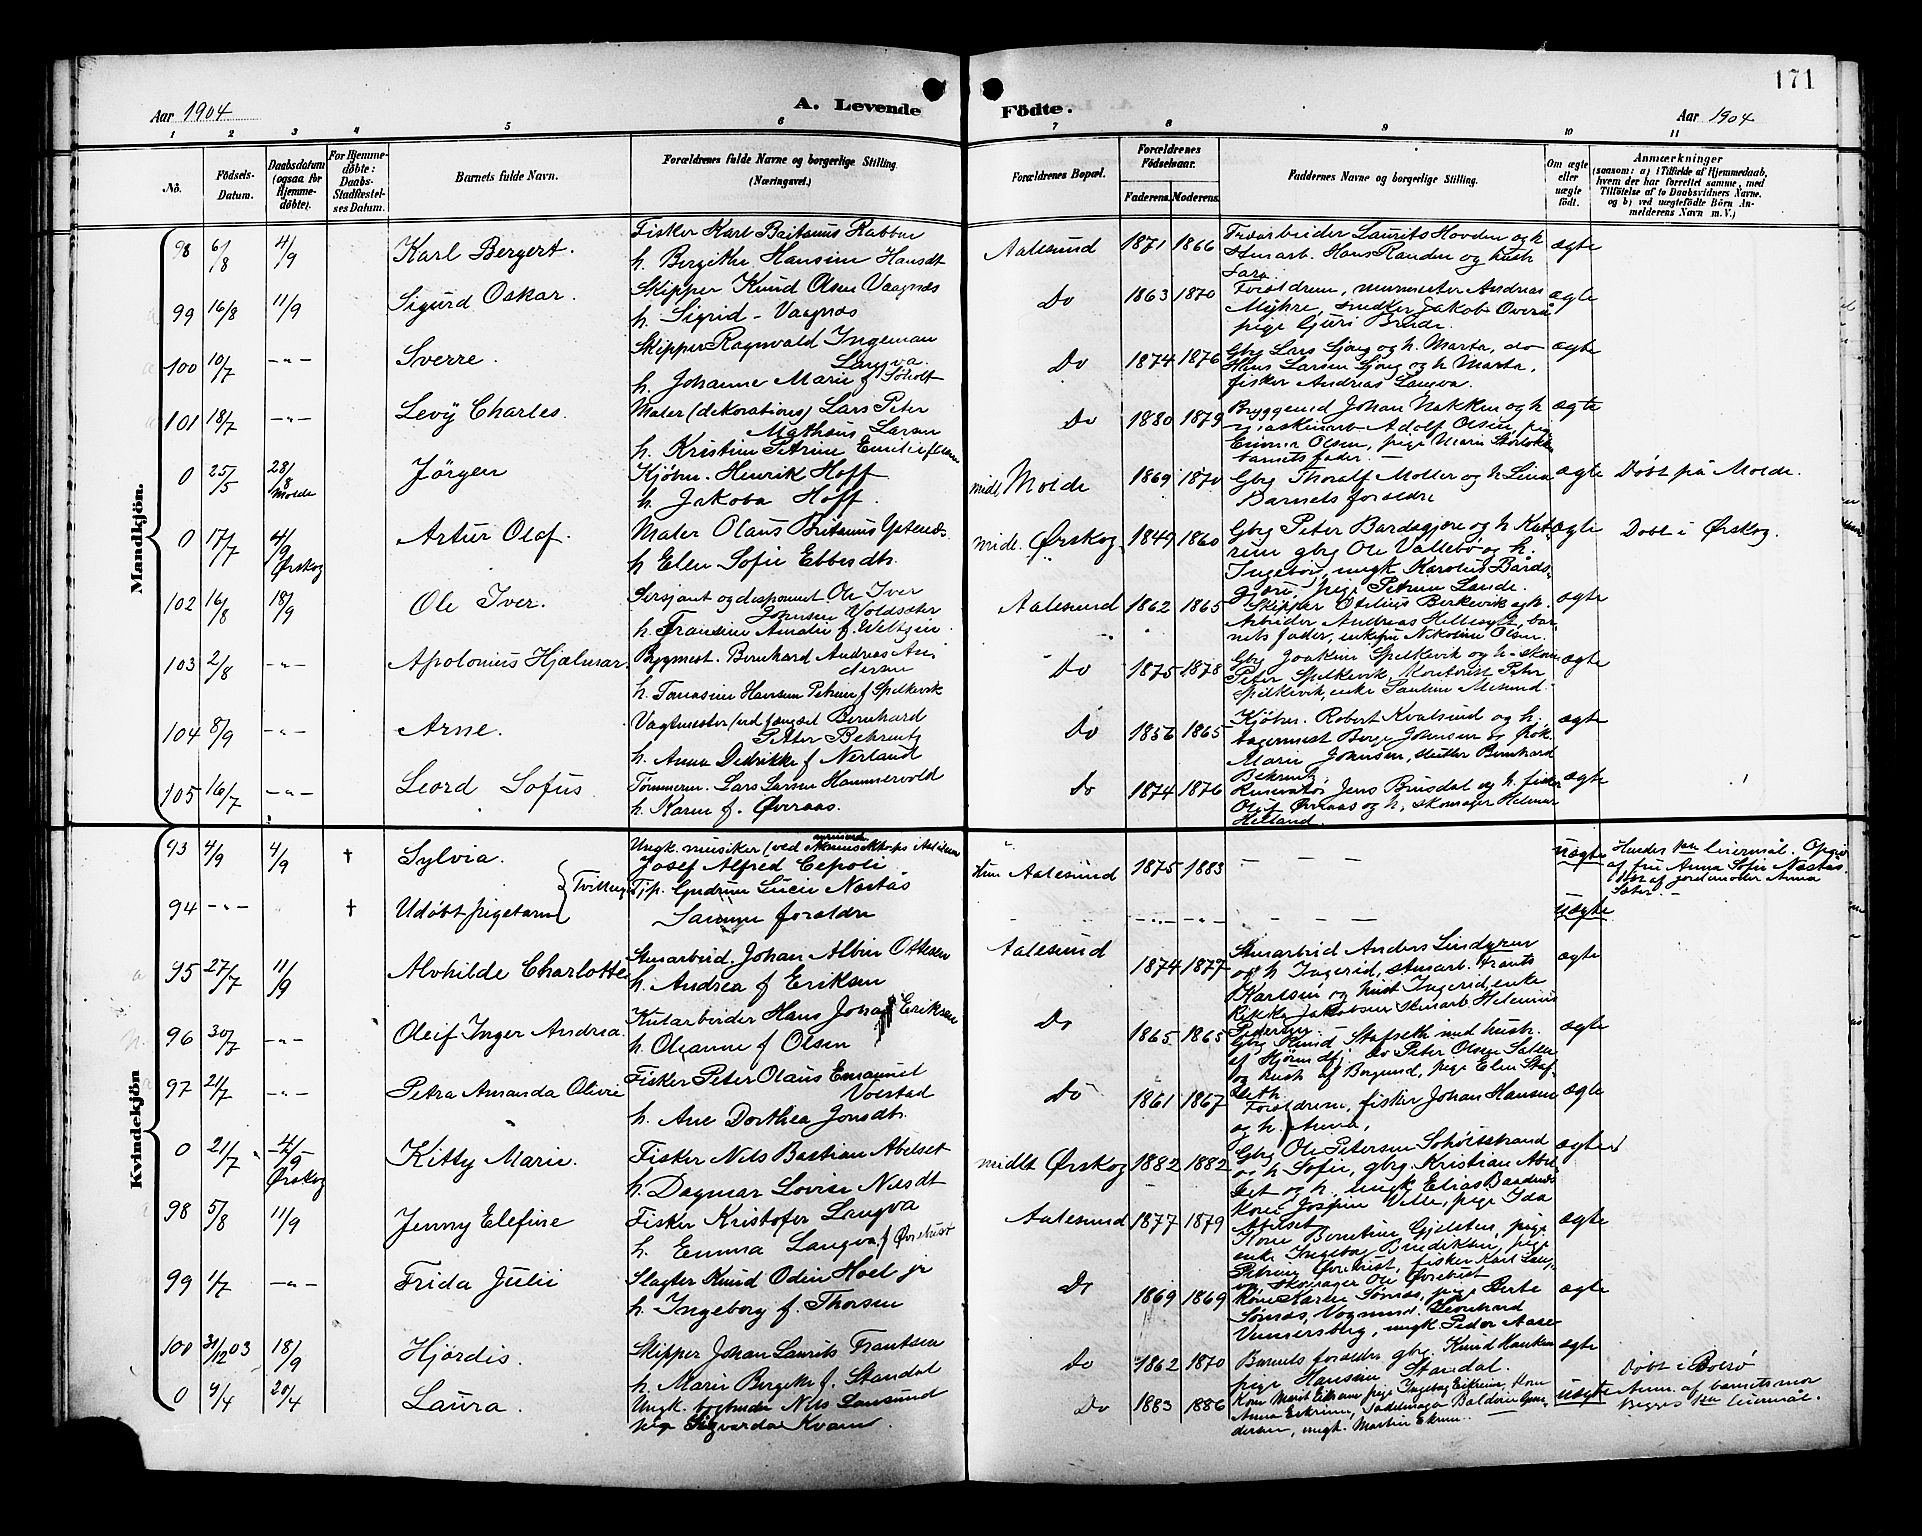 171
Aar 1904
A. Levende
Födte.
Aar 1904
1 2 3 4 5 6 7 8 9 10 11
No.
Födsels-
Datum.
Daabsdatum
(ogsaa for
Hjemme-
döbte).
For Hjemme-
döbte:
Daabs-
Stadfæstel-
ses Datum.
Barnets fulde Navn.
Forældrenes fulde Navne og borgerlige Stilling.
(Næringsvei.)
Forældrenes Bopæl.
Forældrenes
Födselsaar.
Faderens. Moderens.
Faddernes Navne og borgerlige Stilling.
Om ægte
eller
uægte
födt.
Anmærkninger
(saasom: a) i Tilfælde af Hjemmedaab,
hvem der har forrettet samme, med
Tilföielse af to Daabsvidners Navne.
og b) ved uægtefödte Börn An-
melderens Navn m. V.)
Mandkjön.
98 6/8 4/9 Karl Bergert.
Fisker Karl Britanus Rabben
h. Bergithe Hansine Hansdt
Aalesund 1871 1866
Hans Randen og hustr
ægte
99 16/8 11/9 Sigurd Oskar.
Skipper Knud Olsen Vaagnes
h. Sigrid - Vaagnæs
Do 1863 1870
Forældrene, murmester Andreas
Myhre, snedker Jakob
pige Guri
ægte
100 10/7 -"- Sverre.
Skipper Ragnvald Ingeman
Langva.
h. Johanne Marie f Söholt
Do 1874 1876
Gbg Lars Ljöng og h. Marta, do
Hans Larsen Ljöng og h Marta,
fisker Andreas Langva.
ægte
101 18/7 -"- Levÿ Charles.
Maler (dekorations) Lars Peter
Mathæus Larsen
h. Kristine Petrine Emilie
Do 1880 1879
Johan Nakken og h
Adolf Olsen,
Olsen, pige Marie
barnets fader. -
ægte
0 25/5 28/8 Molde Jörgen
Kjöbm. Henrik Hoff
h. Jakoba Hoff.
midl Molde 1869 1870
Gbg Thoralf Moller og h Lina
Barnets forældre
ægte
Döbt på Molde.
0 17/7 4/9 Ørskog Artur Olaf.
Maler Olaus Britanus Ystenæs
h Elen Sofie Ebbesdtr.
midl. Ørskog 1849 1860
Gbg Peter Bardsgjere og h Kat-
rine gbg Ole Vallebö og h.
Ingebor, ungk Karolius Bards-
gjære, pige Petrine Lande.
ægte
Döbt i Ørskog.
102 16/8 18/9 Ole Iver.
Sersjant og desponent Ole Iver
Johnsen Voldsæter
h. Fransine Amalie f. Weltzin
Aalesund 1862 1865
Skipper Otelius Berkevik og h.
Arbeider Andreas Hellesylt, bar-
nets fader, enkefru Nikoline Olsen.
ægte
103 2/8 -"- Apolonius Hjælmar.
Bygmest. Bernhard Andreas An-
dersen
h. Tomasine Hansine Petrine f Spelkevik
Do 1875 1878
Gbg Joakim Spelkevik og h
Peter Spelkevik, Kontorist Peter
Spelkevik, enke Pauline
ægte
104 8/9 -"- Arne.
Vagtmester ved fængsel Bernhard
Peter Behrentz
h. Anna Didrikke f Nerland
Do 1856 1865
Kjöbm. Robert Kvalsund og h.
Johnsen og frök.
Marie Johnsen, slutter Bernhard
Behrentz
ægte
105 16/7 -"- Leord Sofus
Tömmerm. Lars Larsen Hammervold
h. Karen f. Øveraas.
Do 1874 1876
Jens Brusdal og h. fisker
Oluf Øveraas og h, skomager Helmer
Helland.
ægte
Kvindekjön
93 4/9 4/9 † Sylvia.
Ungk. musiker
Josef Alfred Cepoli
Tjp. Gudrun Lucie Nastås
Aalesund 1875 1883 - - -
uægte
Hendes 1ste leiermål.
af fru Anna Sofie Nastås.
af jordemoder Anna
Sæter. -
Tvilling
94 -"- † Udöbt pigebarn
Samme forældre
-"- -"- - - -
uægte
95 27/7 11/9 Alvhilde Charlotte
Stenarbeid. Johan Albin Ottesen
h. Andrea f Eriksen
Aalesund 1874 1877
Stenarbeid Anders Lindgren
og h Ingerid, stenarb. Frants
Karlsen og hust Ingerid, enke
Rikke Jakobsen stenarb Helenius
Pedersen
ægte
96 30/7 -"- Oleif Inger Andrea
Kularbeider Hans Johan Eriksen
h. Oleanne f Olsen
Do 1865 1865
Gbg Knud Stafseth med hustr.
af Hjörundfj. Do Peter Olsen Sætre
og hust af Borgund, pige Elen Staf-
seth.
ægte
97 21/7 -"- Petra Amanda Olivie
Fisker Peter Olaus Emanuel
Voldstad
h. Ane Dorthea Jonsdtr.
Do 1861 1867
Forældrene, fisker Johan Hansen
og h. Anna,
ægte
0 21/7 4/9 Ørskog Kitty Marie.
Fisker Nils Bastian Abelset
h. Dagmar Lovise Nilsdt
midlt Ørskog 1882 1882
Gbg Ole Petersen Söholtsstrand
og h Sofie, gbg. Kristian Abel-
set og h, ungk Elias
Kone Jospine Velle, pige Ida
Abelset
ægte
98 5/8 11/9 Jenny Elefine
Fisker Kristofer Langva
h. Emma Langva f Øvrebust
Aalesund 1877 1879
Kone Berntine Gjelsten, pige
enke Ingeborg Brudiksen, pige
Petrine Øvrebust, fisker Karl Lang-
va, skomager Ole Øvrebust
ægte
99 1/7 -"- Frida Julie
Slagter Knud Odin Hoel jr
h. Ingeborg f. Thorsen
Do 1869 1869
Kone Karen Sömås, pige Berte
Sömås, Vognmand Leonhard
Vennersberg, ungk. Peder Aase
ægte
100 31/12 03 18/9 Hjördis.
Skipper Johan Laurits Frantsen
h. Marie Bergithe f. Standal
Do 1862 1870
Barnets forældre gbg. Knud Hansen
pige Hanssen Standal.
ægte
0 4/4 20/4 Laura.
Ungk. Nils Lansund
pige Sigvarda Kvam.
Do 1883 1886
Kone Marit Eikrem pige Ingeborg Eikrem, Kone
Anna Eikrem, Baldevin Gun-
dersen, ungk. Martin Ekrem. -
uægte
Döbt i
Anm. af barnets mor
Begges 1ste leiermål.